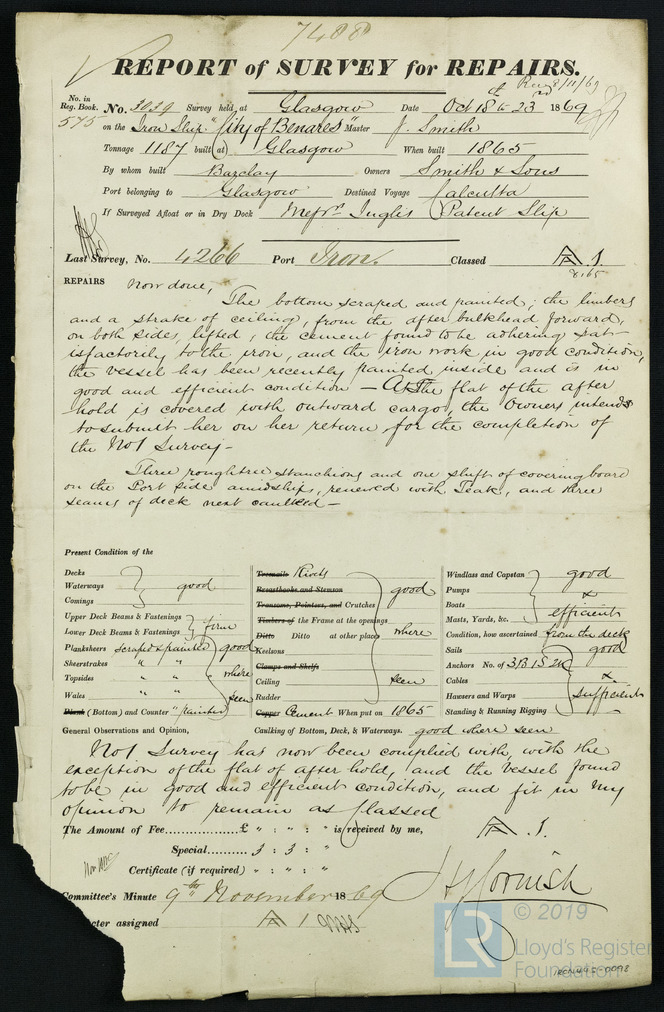 7408
REPORT of SURVEY for REPAIRS.
Rec 8/11/69
No. in Reg. Book. 575
No. 3039 Survey held at Glasgow Date Oct 18th to 23rd 1869
on the Iron Ship "City of Benares" Master J. Smith
Tonnage 1187 built at Glasgow When built 1865
By whom built Barclay Owners Smith & Sons
Port belonging to Glasgow Destined Voyage Calcutta
If Surveyed Afloat or in Dry Dock Messrs Inglis Patent Slip
Last Survey, No. 4266 Port Iron. Classed A. 1.
8,65
REPAIRS Now done,
The bottom scraped and painted; the limbers
and a strake of ceiling, from the after bulkhead forward,
on both sides, lifted; the cement found to be adhering sat-
isfactorily to the iron, and the iron work in good condition,
the vessel has been recently painted inside and is in
good and efficient condition — As the flat of the after
hold is covered with outward cargo, the Owners intends
to submit her on her return for the completion of
the No 1 Survey —
Three roughtree stanchions and one shift of covering board
on the Port side amidships, renewed with Teak, and three
seams of deck next caulked —
Present Condition of the
Decks
Waterways good
Comings
Upper Deck Beams & Fastenings
Lower Deck Beams & Fastenings firm
Planksheers scraped & painted good
Sheerstrakes " " "
Topsides " " " where
Wales " " " seen
(Bottom) and Counter " painted
Treenails Rivets
Breasthooks and Stemson good
Transoms, Pointers, and Crutches
Timbers of the Frame at the openings
Ditto Ditto at other places where
Keelsons
Clamps and Shelfs
Ceiling seen
Rudder
Copper Cement When put on 1865
Windlass and Capstan good
Pumps x
Boats
Masts, Yards, &c. efficient
Condition, how ascertained from the deck
Sails good
Anchors No. of 3B 1S 2K
Cables x
Hawsers and Warps sufficient
Standing & Running Rigging
General Observations and Opinion, Caulking of Bottom, Deck, & Waterways. good where seen
No 1 Survey has now been complied with, with the
exception of the flat of after hold, and the vessel found
to be in good and efficient condition, and fit in my
opinion to remain as Classed
A. 1.
The Amount of Fee............... £ " : " : " is received by me,
Special.......... 3 : 3 : "
Certificate (if required) " : " : "
H J Cornish
Committee's Minute 9th November 1869
cter assigned A 1
© 2019
LR
Lloyd's Register
Foundation